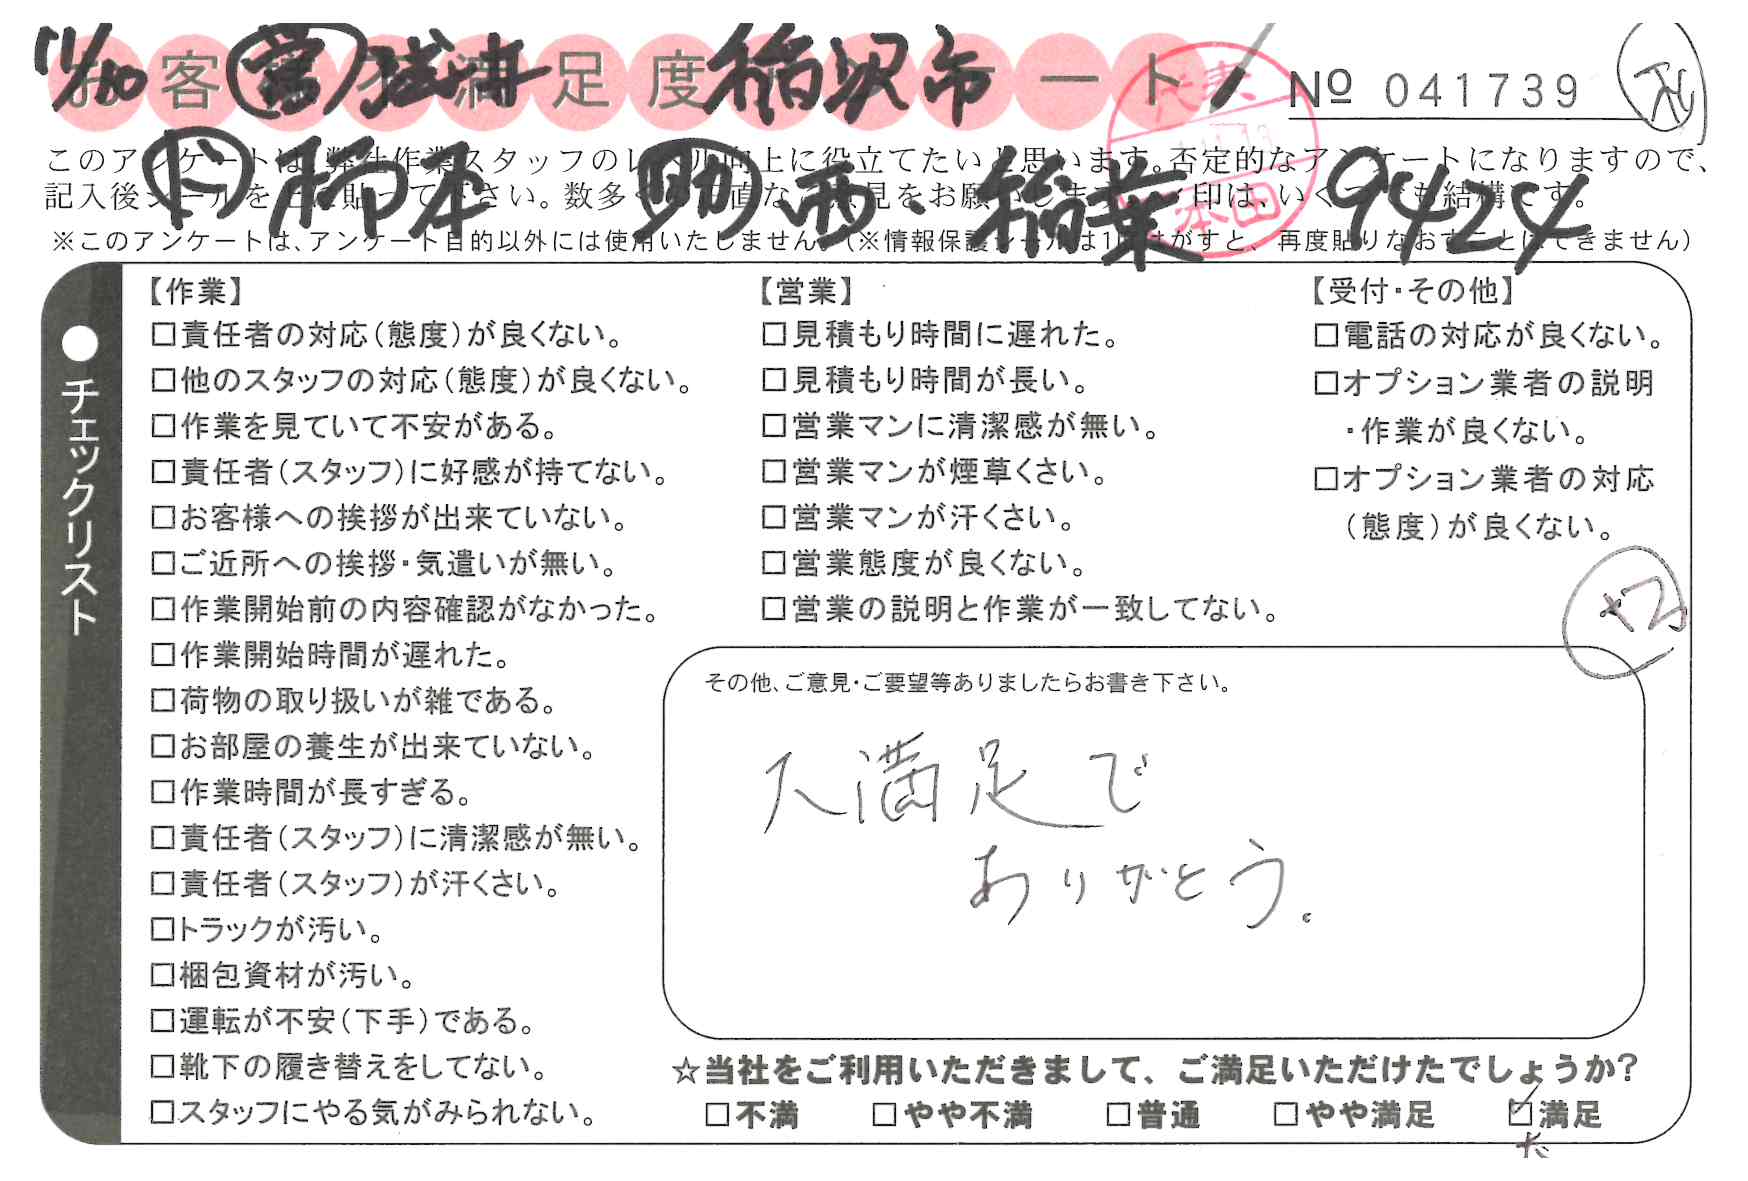 11/30 お客様不満足度アンケート 営 浅井 稲沢市 No 041739
このアンケートは、弊社作業スタッフのレベル向上に役立てたいと思います。否定的なアンケートになりますので、
ド 柳本 助 西・稲葉 9424
記入後シールを上に貼って下さい。数多くの正直な意見をお願いします。レ印は、いくつでも結構です。
※このアンケートは、アンケート目的以外には使用いたしません。(※情報保護シールは1度はがすと、再度貼りなおすことはできません)
本田
チェックリスト
【作業】
□責任者の対応(態度)が良くない。
□他のスタッフの対応(態度)が良くない。
□作業を見ていて不安がある。
□責任者(スタッフ)に好感が持てない。
□お客様への挨拶が出来ていない。
□ご近所への挨拶・気遣いが無い。
□作業開始前の内容確認がなかった。
□作業開始時間が遅れた。
□荷物の取り扱いが雑である。
□お部屋の養生が出来ていない。
□作業時間が長すぎる。
□責任者(スタッフ)に清潔感が無い。
□責任者(スタッフ)が汗くさい。
□トラックが汚い。
□梱包資材が汚い。
□運転が不安(下手)である。
□靴下の履き替えをしてない。
□スタッフにやる気がみられない。
【営業】
□見積もり時間に遅れた。
□見積もり時間が長い。
□営業マンに清潔感が無い。
□営業マンが煙草くさい。
□営業マンが汗くさい。
□営業態度が良くない。
□営業の説明と作業が一致してない。
【受付・その他】
□電話の対応が良くない。
□オプション業者の説明
・作業が良くない。
□オプション業者の対応
(態度)が良くない。
+2
その他、ご意見・ご要望等ありましたらお書き下さい。
大満足で
ありがとう。
☆当社をご利用いただきまして、ご満足いただけたでしょうか?
□不満 □やや不満 □普通 □やや満足 ☑満足
大